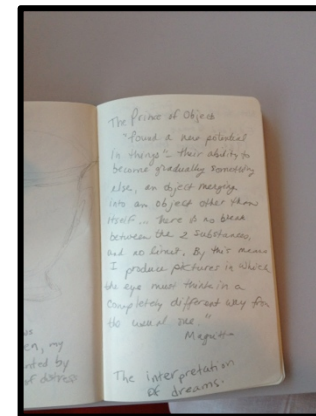 The Prince of Objects
"found a new potential
in things" - their ability to
become gradually something
else, an object merging
into an object other than
itself... there is no break
between the 2 substances,
and no limit. By this means
I produce pictures in which
the eye must think in a
completely different way from
the usual one"
Magritte
The interpretation
of dreams.
en, my
nted by
of distress